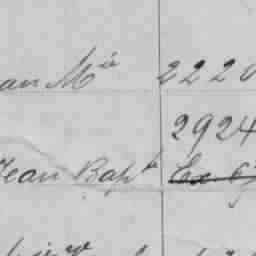 an Mie 2220
2924
Jean Bapte Ex 6